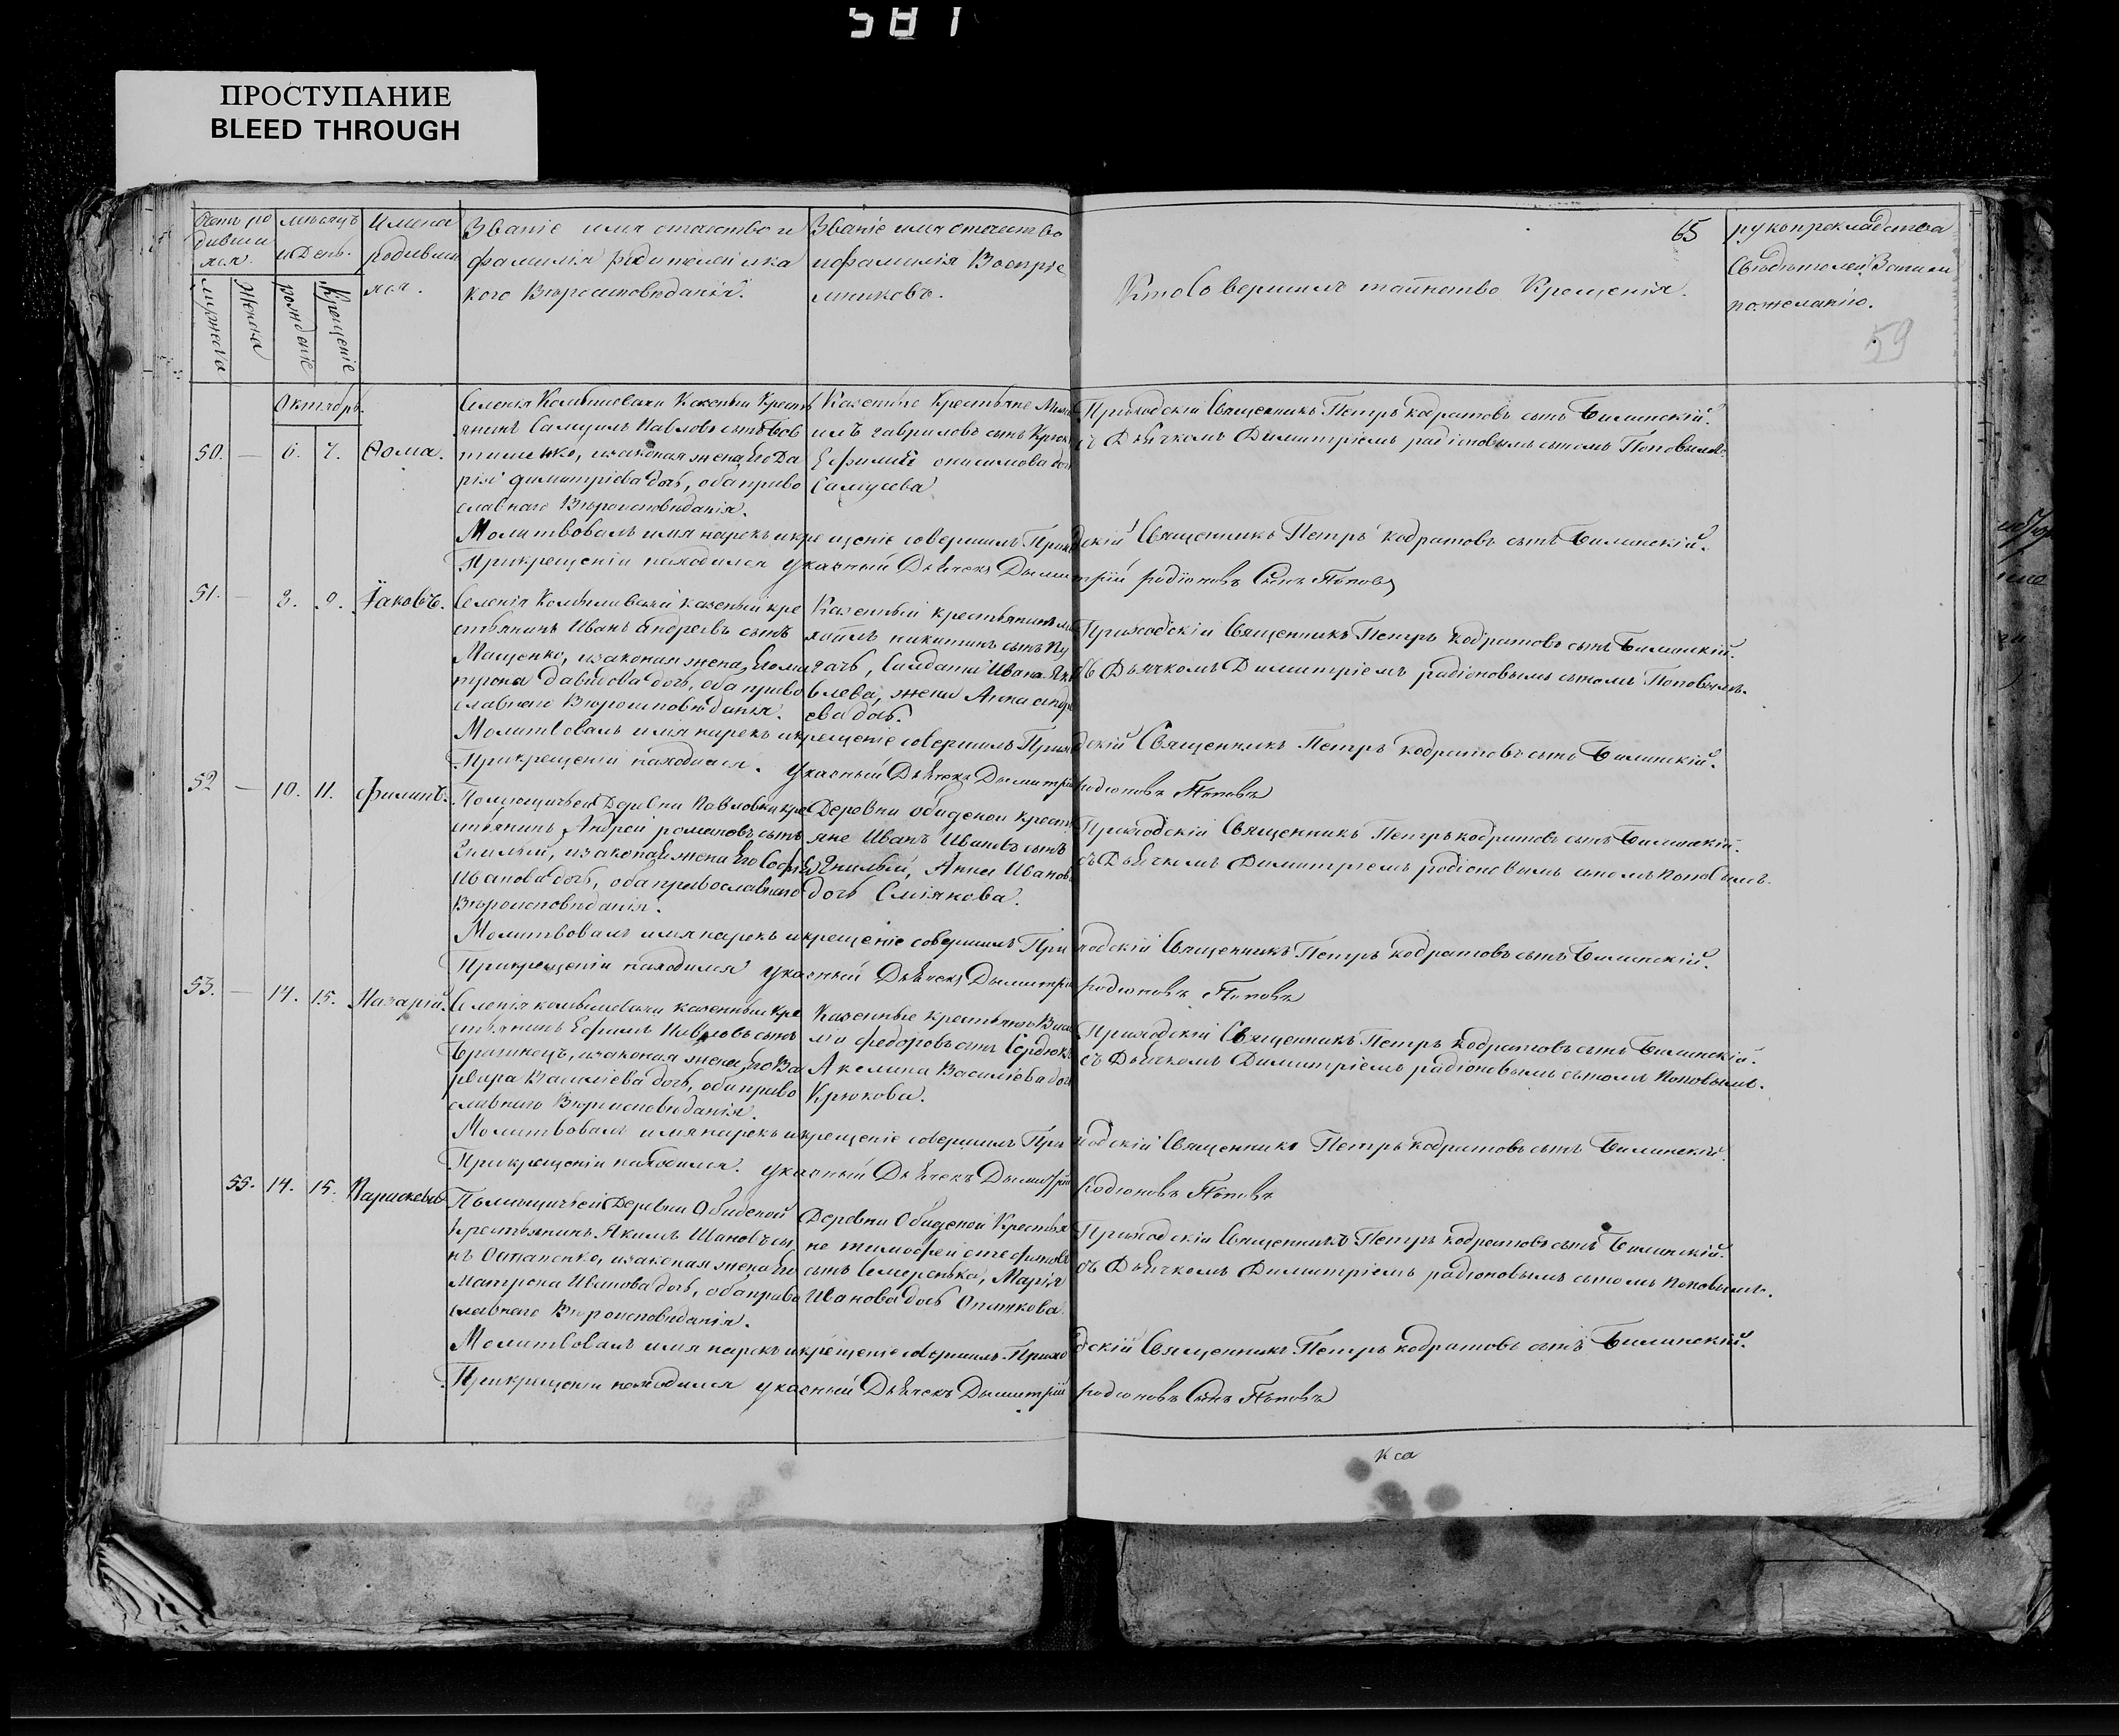 581
ПРОСТУПАНИЕ
BLEED THROUGH
65
59
Счетъ ро
дивши
хся.
мужеска
Женска
мѣсяцъ
и День.
рожденіе
Крещеніе
Имена
родивши
хся.
Званіе имя отчество и
фамилія родителей и ка
кого Вѣроисповѣданія.
Званіе имя отчество
и фамилія Воспріе
мниковъ.
Кто Совершилъ таинство Крещенія.
рукоприкладства
Свидѣтелей Записи
по желанію.
Октябрь.
50. — 6. 7. Ѳома.
Селенія Комышевахи Казеный Кресть
янинъ Самуилъ Павловъ сынъ
законая жена Его Да
рія Димитріева дочь, оба право
славнаго Вѣроисповѣданія.
Казеные Крестьяне
илъ гавриловъ сынъ
Ефимія онисимова доч
Самусева
Приходскій Священникъ Петръ кодратовъ сынъ Билинскій.
съ Дьячкомъ Димитріемъ радіоновымъ сыномъ Поповымъ.
Молитвовалъ имя нарекъ и крещеніе совершилъ Приходскій Священникъ Петръ кодратовъ сынъ Билинскій.
При крещеніи находился указный Дьячекъ Дымитрій родіоновъ Сынъ Поповъ
51. — 8. 9. Іаковъ.
Селенія Комышевахи казеный кре
стьянинъ Иванъ Андреевъ сынъ
Мащенко, законая жена, Его ма
трона давидова дочь, оба право
славнаго Вѣроисповѣданія.
Казенный крестьянинъ ми
хаилъ никитинъ сынъ Пу
гачъ, Салдата Ивана Яко
влева, жена Анна андре
ева дочь.
Приходскій Священникъ Петръ Кодратовъ сынъ Билинскій.
съ Дьячкомъ Димитріемъ радіоновымъ сыномъ Поповымъ.
Молитвовалъ имя нарекъ и крещеніе совершилъ Приходскій Священникъ Петръ кодратовъ сынъ Билинскій.
При крещеніи находился. указный Дьячекъ Дымитрій родіоновъ Поповъ
52 — 10. 11. Филипъ.
Помещичьей Деревни Павловки кре
стьянинъ Андрей романовъ сынъ
Гнилый, законая жена Его Софія
Иванова дочь, оба православнаго
Вѣроисповѣданія.
Деревни обиденой крестья
яне Иванъ Ивановъ сынъ
Гнилый, Анна Иванов
дочь Сміякова.
Приходскій Священникъ Петръ кодратовъ сынъ Билинскій.
съ Дьячкомъ Димитріемъ родіоновымъ сыномъ Поповымъ.
Молитвовалъ имя нарекъ и крещеніе совершилъ Приходскій Священникъ Петръ кодратовъ сынъ Билинскій.
При крещеніи находился указный Дьячекъ Дымитрій родіоновъ Поповъ
53. — 14. 15. Назарій.
Селенія комышевахи казенный кре
стьянинъ Ефимъ Павловъ сынъ
законая жена, Его Ва
рвара Василіева дочь, оба право
славнаго Вѣроисповѣданія.
Казенные крестьяне Васи
лій федоровъ сынъ Сердюкъ
Акелина Василіева доч
Крюкова.
Приходскій Священникъ Петръ Кодратовъ сынъ Билинскій.
съ Дьячкомъ Димитріемъ радіоновымъ сыномъ Поповымъ.
Молитвовалъ имя нарекъ и крещеніе совершилъ Приходскій Священникъ Петръ кодратовъ сынъ Билинскій.
При крещеніи находился. указный Дьячекъ Дымитрій Родіоновъ Поповъ
55. 14. 15. Параскева
Помещичьей Деревни Обиденой
крестьянинъ Якимъ Ивановъ сы
нъ Остапенко, законая жена Его
Матрона Иванова дочь, оба право
славнаго Вѣроисповѣданія.
Деревни Обиденой Крестья
не тимофей стефановъ
сынъ Семеренька, Марія
Иванова дочь
Приходскій Священникъ Петръ Кодратовъ сынъ Билинскій.
съ Дьячкомъ Димитріемъ радіоновымъ сыномъ Поповымъ.
Молитвовалъ имя нарекъ и крещеніе совершилъ Приходскій Священникъ Петръ кодратовъ сынъ Билинскій.
При крещеніи находился указный Дьячекъ Дымитрій родіоновъ Сынъ Поповъ